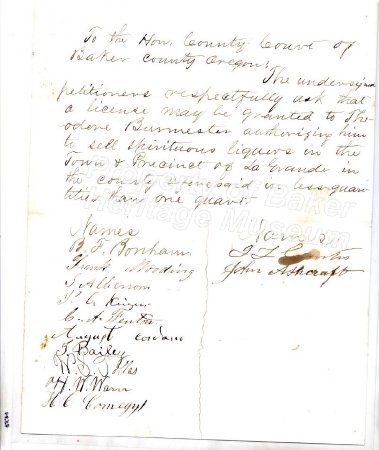 To the Hon. County Court of
Baker County Oregon;
The undersigned
petitioners respectfully ask that
a license may be granted to The-
odore Burmester authorizing him
to sell spirituous liquors in the
Town & Precinct of La Grande in
the county aforesaid in less quan
tities than one quart
Names
Names
B. F. Bonham
John Ashcraft
Grant
S.
C. A. Fenton
August
Bailey
W.
H. W. Warn
H C Comegys
Property of Baker
Heritage Museum